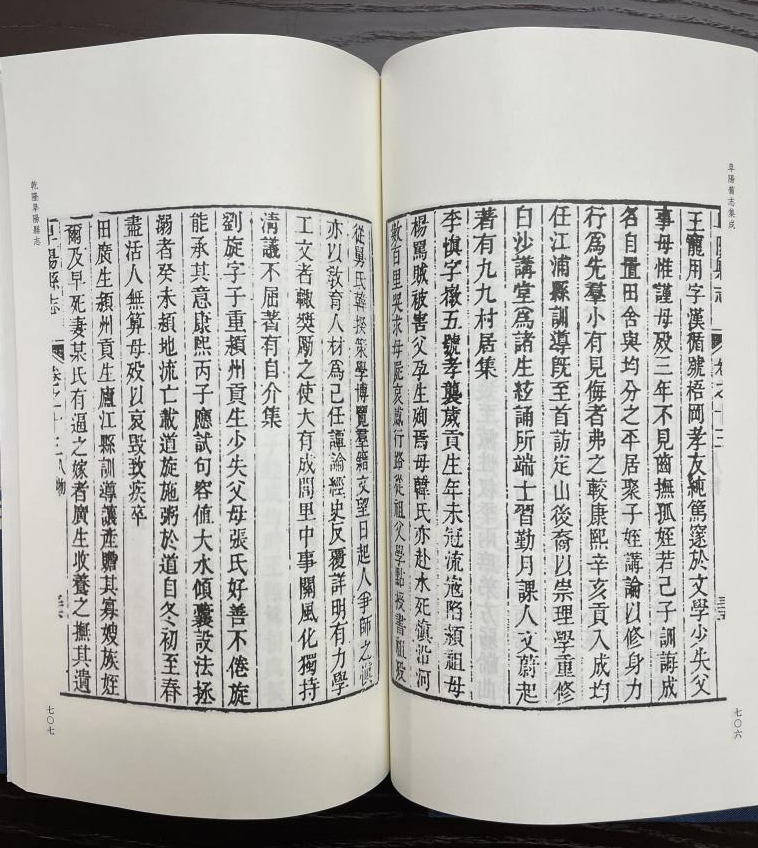 阜陽舊志集成
阜陽縣志 卷之十三 人物 三十五
王寵用字漢循號梧岡孝友純篤邃於文學少失父
事母惟謹母殁三年不見齒撫孤姪若己子訓誨成
名自置田舍與均分之平居聚子姪講論以修身力
行爲先羣小有見侮者弗之較康熙辛亥貢入成均
任江浦縣訓導旣至首訪定山後裔以崇理學重修
白沙講堂爲諸生絃誦所端士習勤月課人文蔚起
著有九九村居集
李慎字徽五號孝龔歲貢生年未冠流寇陷潁祖母
楊罵賊被害父孕生殉焉母韓氏亦赴水死慎沿河
數百里哭求母屍哀感行路從祖父學點授書祖殁
七〇六
從舅氏韓搽策學博覽羣籍文望日起人爭師之慎
亦以敎育人材爲己任譚論經史反覆詳明有力學
工文者輙奬勵之使大有成閭里中事關風化獨持
淸議不屈著有自介集
劉旋字子重潁州貢生少失父母張氏好善不倦旋
能承其意康熙丙子應試句容值大水傾囊設法拯
溺者癸未潁地流亡載道旋施粥於道自冬初至春
盡活人無算母殁以哀毁致疾卒
田廣生潁州貢生廬江縣訓導讓產贍其寡嫂族姪
爾及早死妻某氏有逼之嫁者廣生收養之撫其遺
阜陽縣志 卷之十三 人物 三十六
乾隆阜陽縣志
七〇七